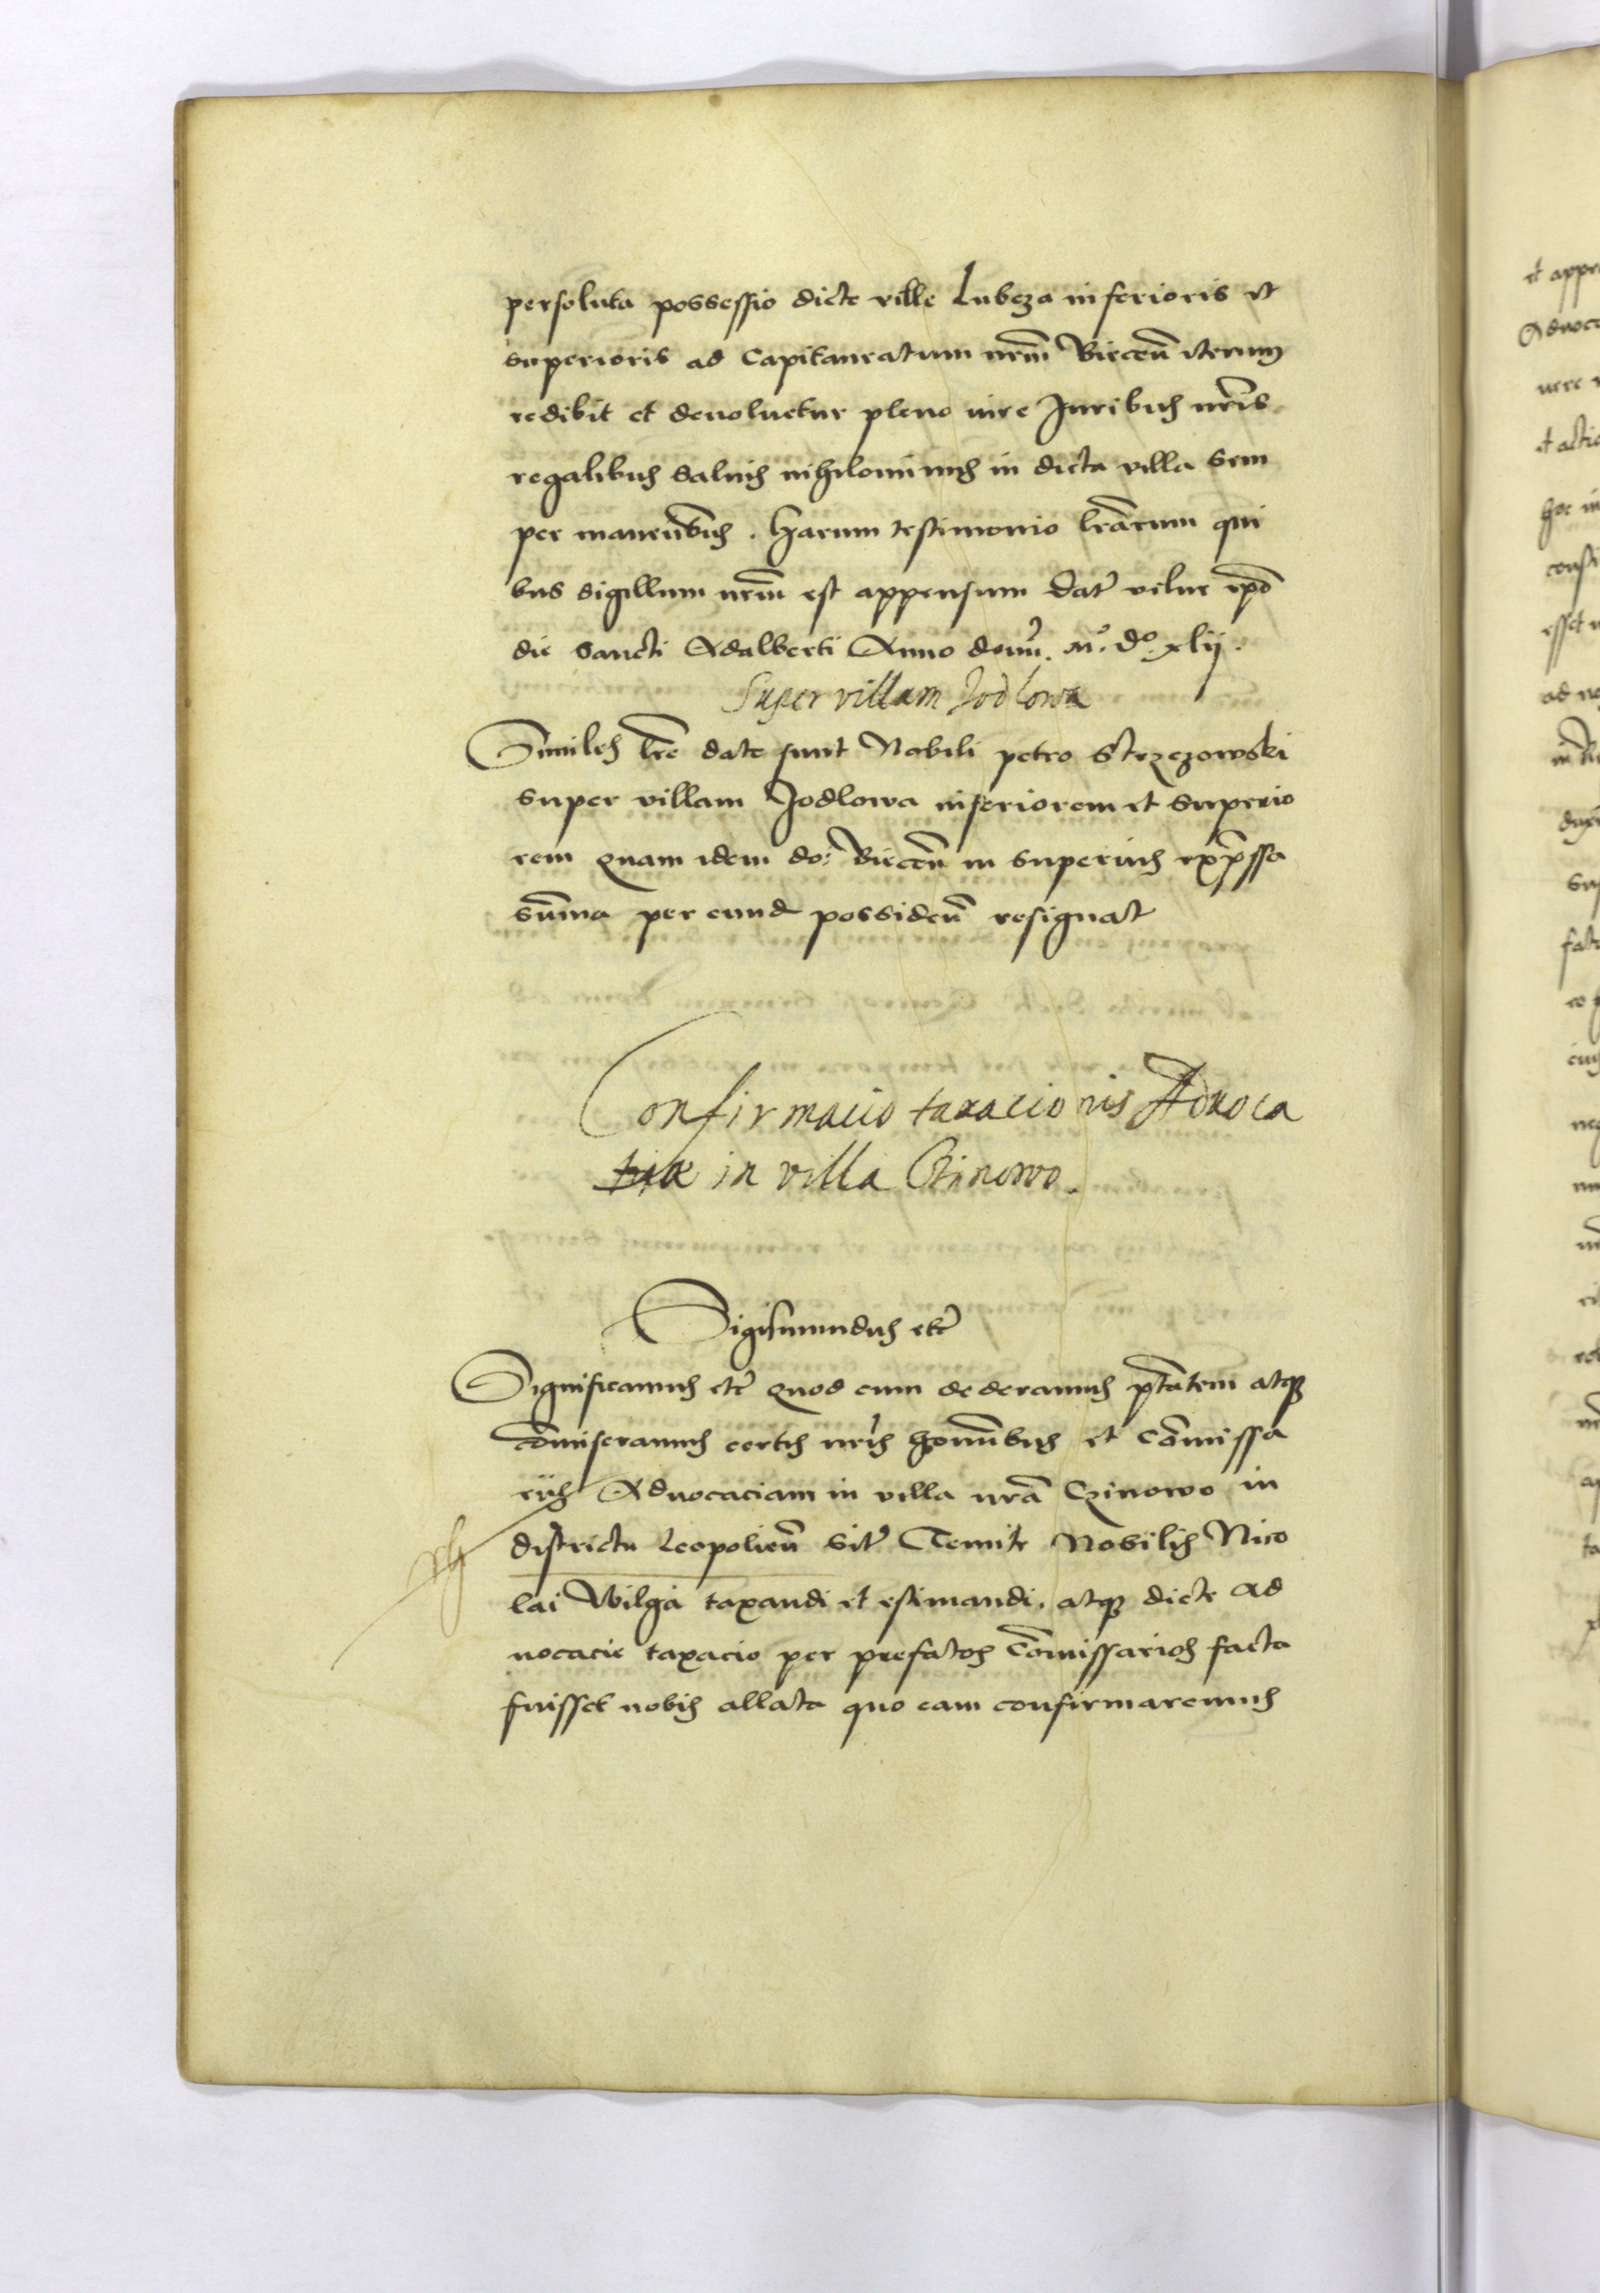 persoluta possessio dicte ville Lubcza inferioris et
superioris ad Capitaneatum nrm̄ Biecceñ iterum
redibit et devoluetur pleno iure Juribus nrīs
regalibus saluis nihilominus in dicta villa sem
per maneñbus. Harum testimonio lrārum qui
bus sigillum nrm̄ est appensum Dat̄ vilne ipō
die Sancti Adalberti Anno domi. Mº. Dº. xlij.
Super villam Jodlowa
Similes lrē date sunt Nobili petro Strzezowski
super villam Jodlowa inferiorem et superio
rem quam idem do: Biecceñ in superius exp̄ssa
sum̄a per eund possideñ resignat
Confirmacio taxacionis Aduoca
tiae in villa Czinowo.
Sigismundus etc̄
Significamus etc̄ quod cum dederamus p̄tātem atq3
com̄iseramus certis nrīs hominībus et Com̄issa
rijs Aduocaciam in villa nrā Czinowo in
districtu Leopolień sit̄ Temite Nobilis Nico
lai Wilga taxandi et estimandi, atq3 dicte ad
uocacie taxacio per prefatos Com̄issarios facta
fuisset nobis allata quo eam confirmaremus